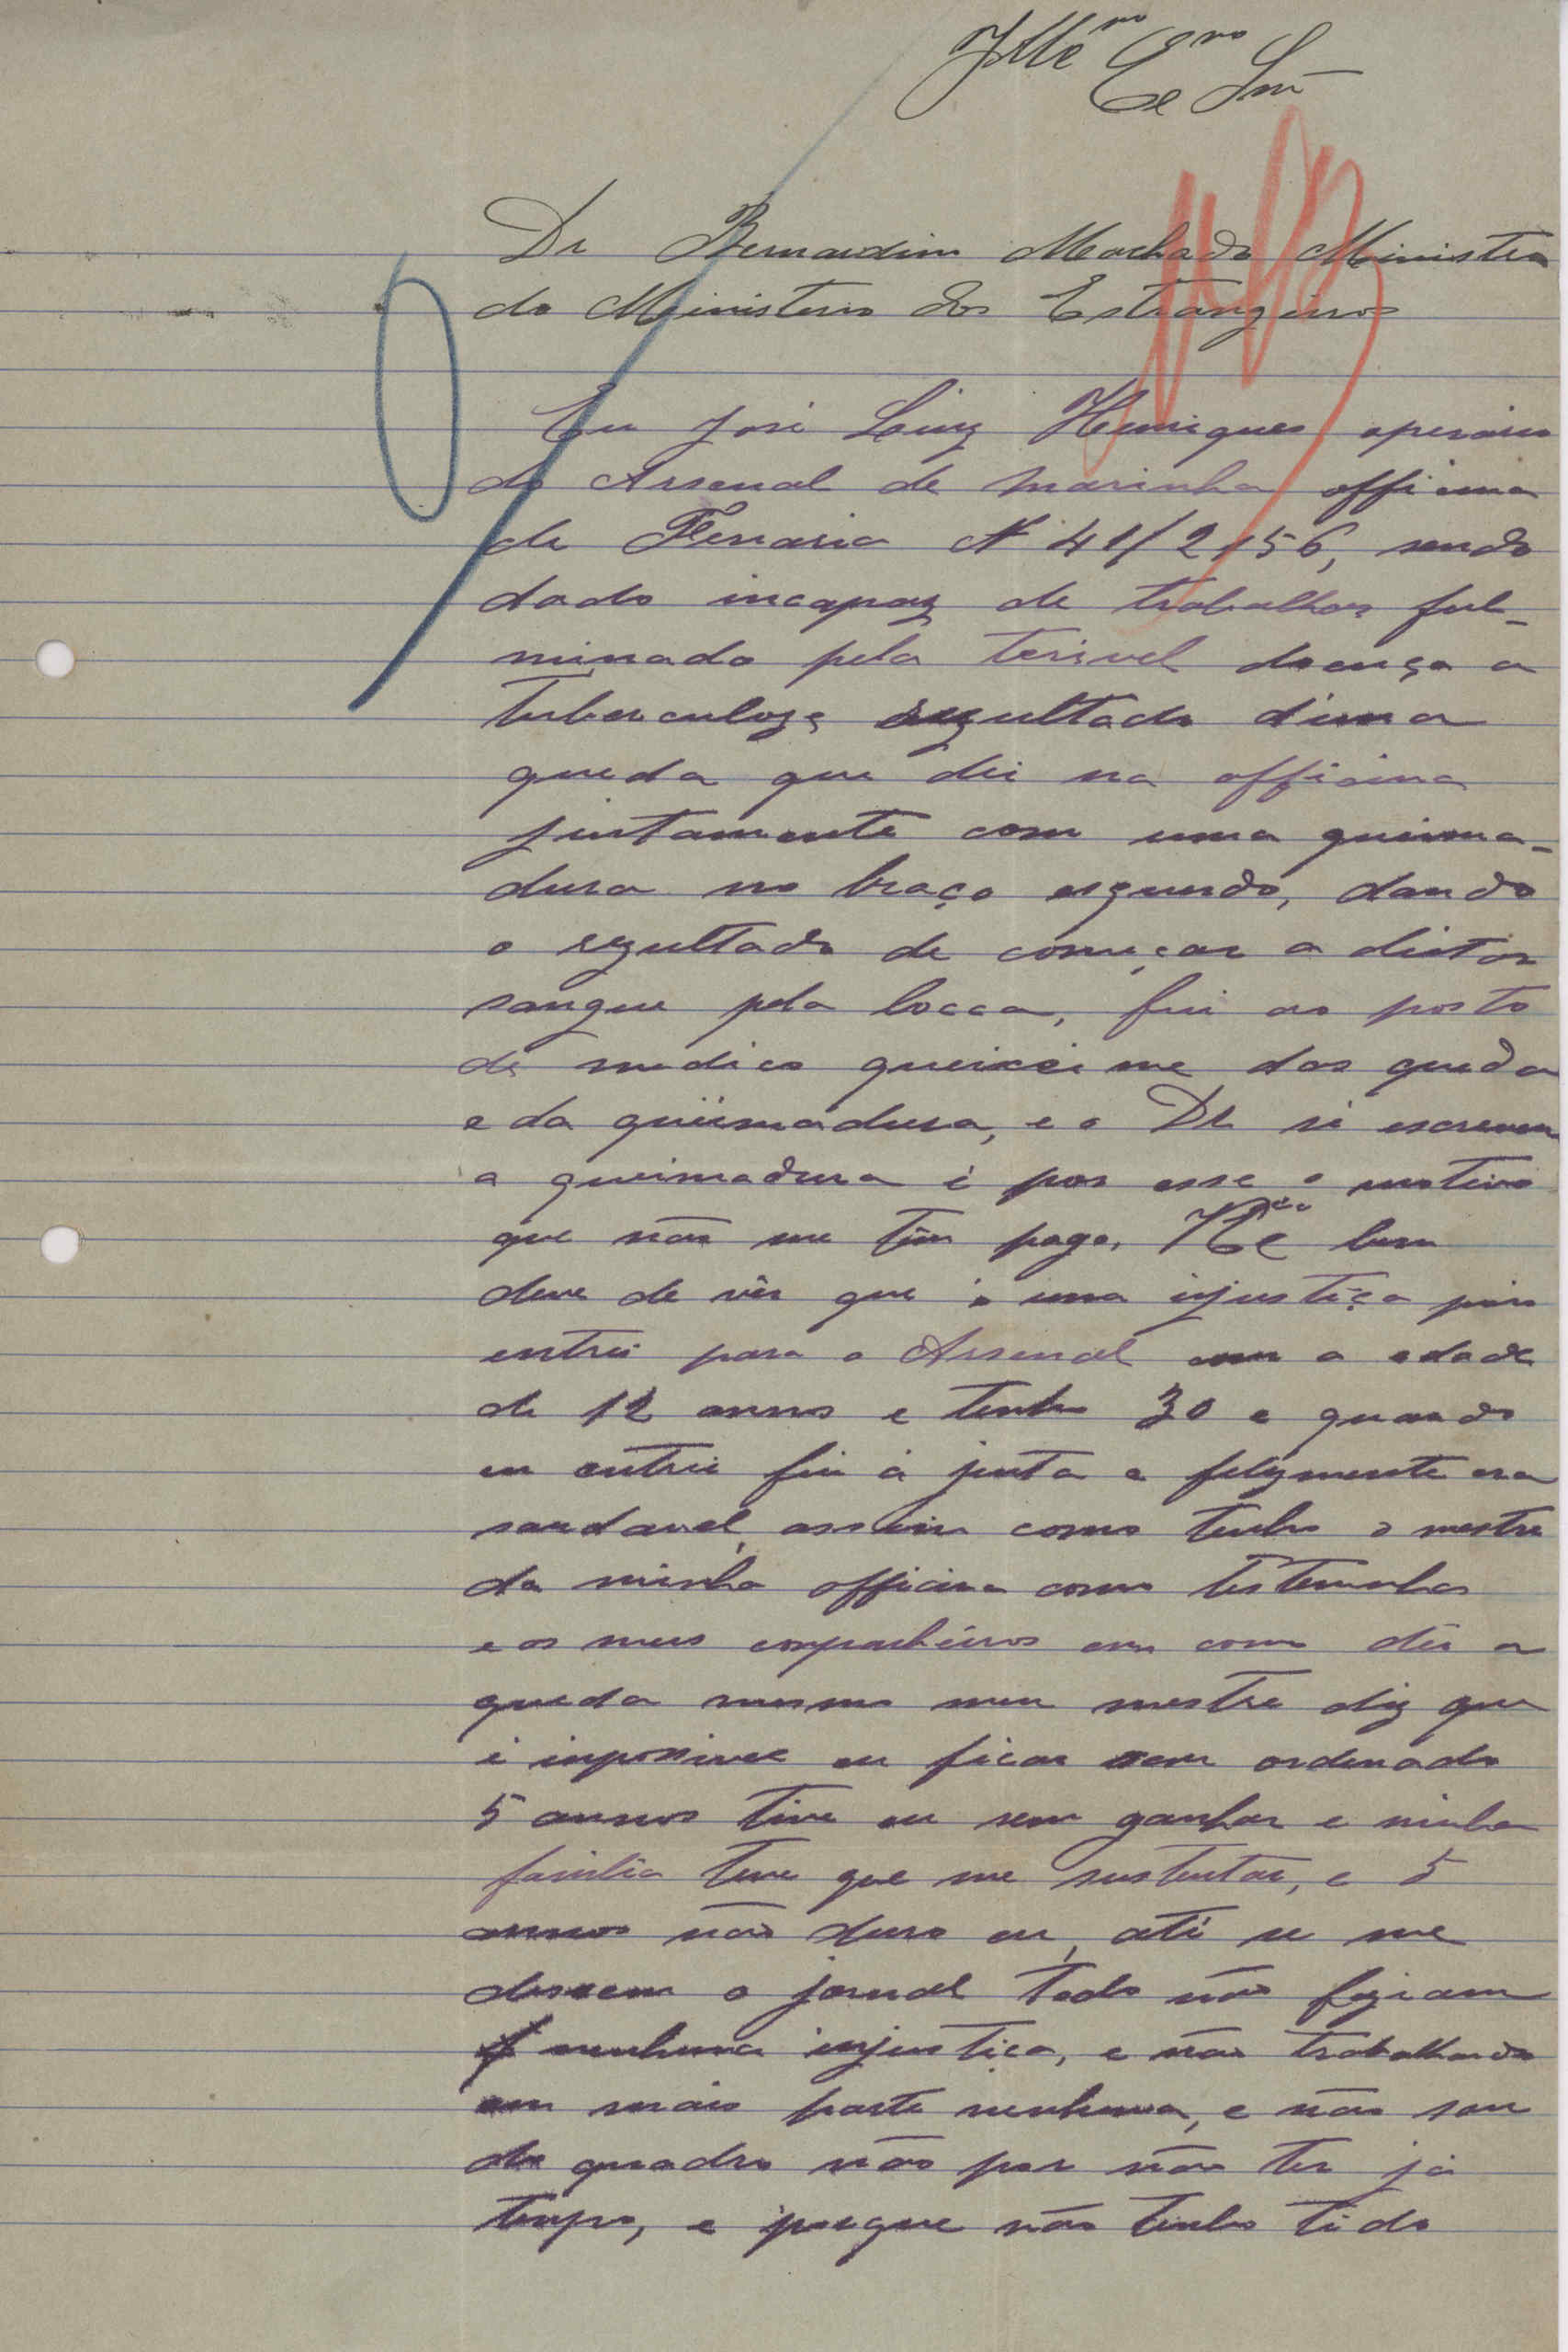 Illmo Exmo Snr
Dr Bernardim Machado Ministro
do Ministerio dos Estrangeiros
Eu José Luiz Henriques operario
do Arsenal de marinha officina
de Ferraria Nº 41/2156, sendo
dado incapaz de trabalhar ful-
minado pela terivel doença a
tuberculoze rezultado d'uma
queda que dei na officina
juntamente com uma queima-
dura no braço esquerdo, dando
o rezultado de começar a deitar
sangue pela bocca, fui ao posto
de medico queixei me das queda
e da queimadura, e o Dr si escreveu
a queimadura é por esse o motivo
que não me têm pago. V Exª bem
deve de vêr que é uma injustiça pois
entrei para o Arsenal com a edade
de 12 annos e tenho 30 e quando
eu entrei fui á junta e felizmente era
saudavel, assim como tenho o mestre
da minha officina como testemunha
e os meus conpanheiros em como dei a
queda mesmo meu mestre diz que
é inpossivel eu ficar sem ordenado
5 annos tive eu sem ganhar e minha
familia teve que me sustentar, e 5
annos não duro eu, até se me
dessem o jornal todo não faziam
nenhuma injustiça, e não trabalhando
em mais parte nenhuma, e não sou
do quadro não por não ter já
tenpo, e porque não tenho tido